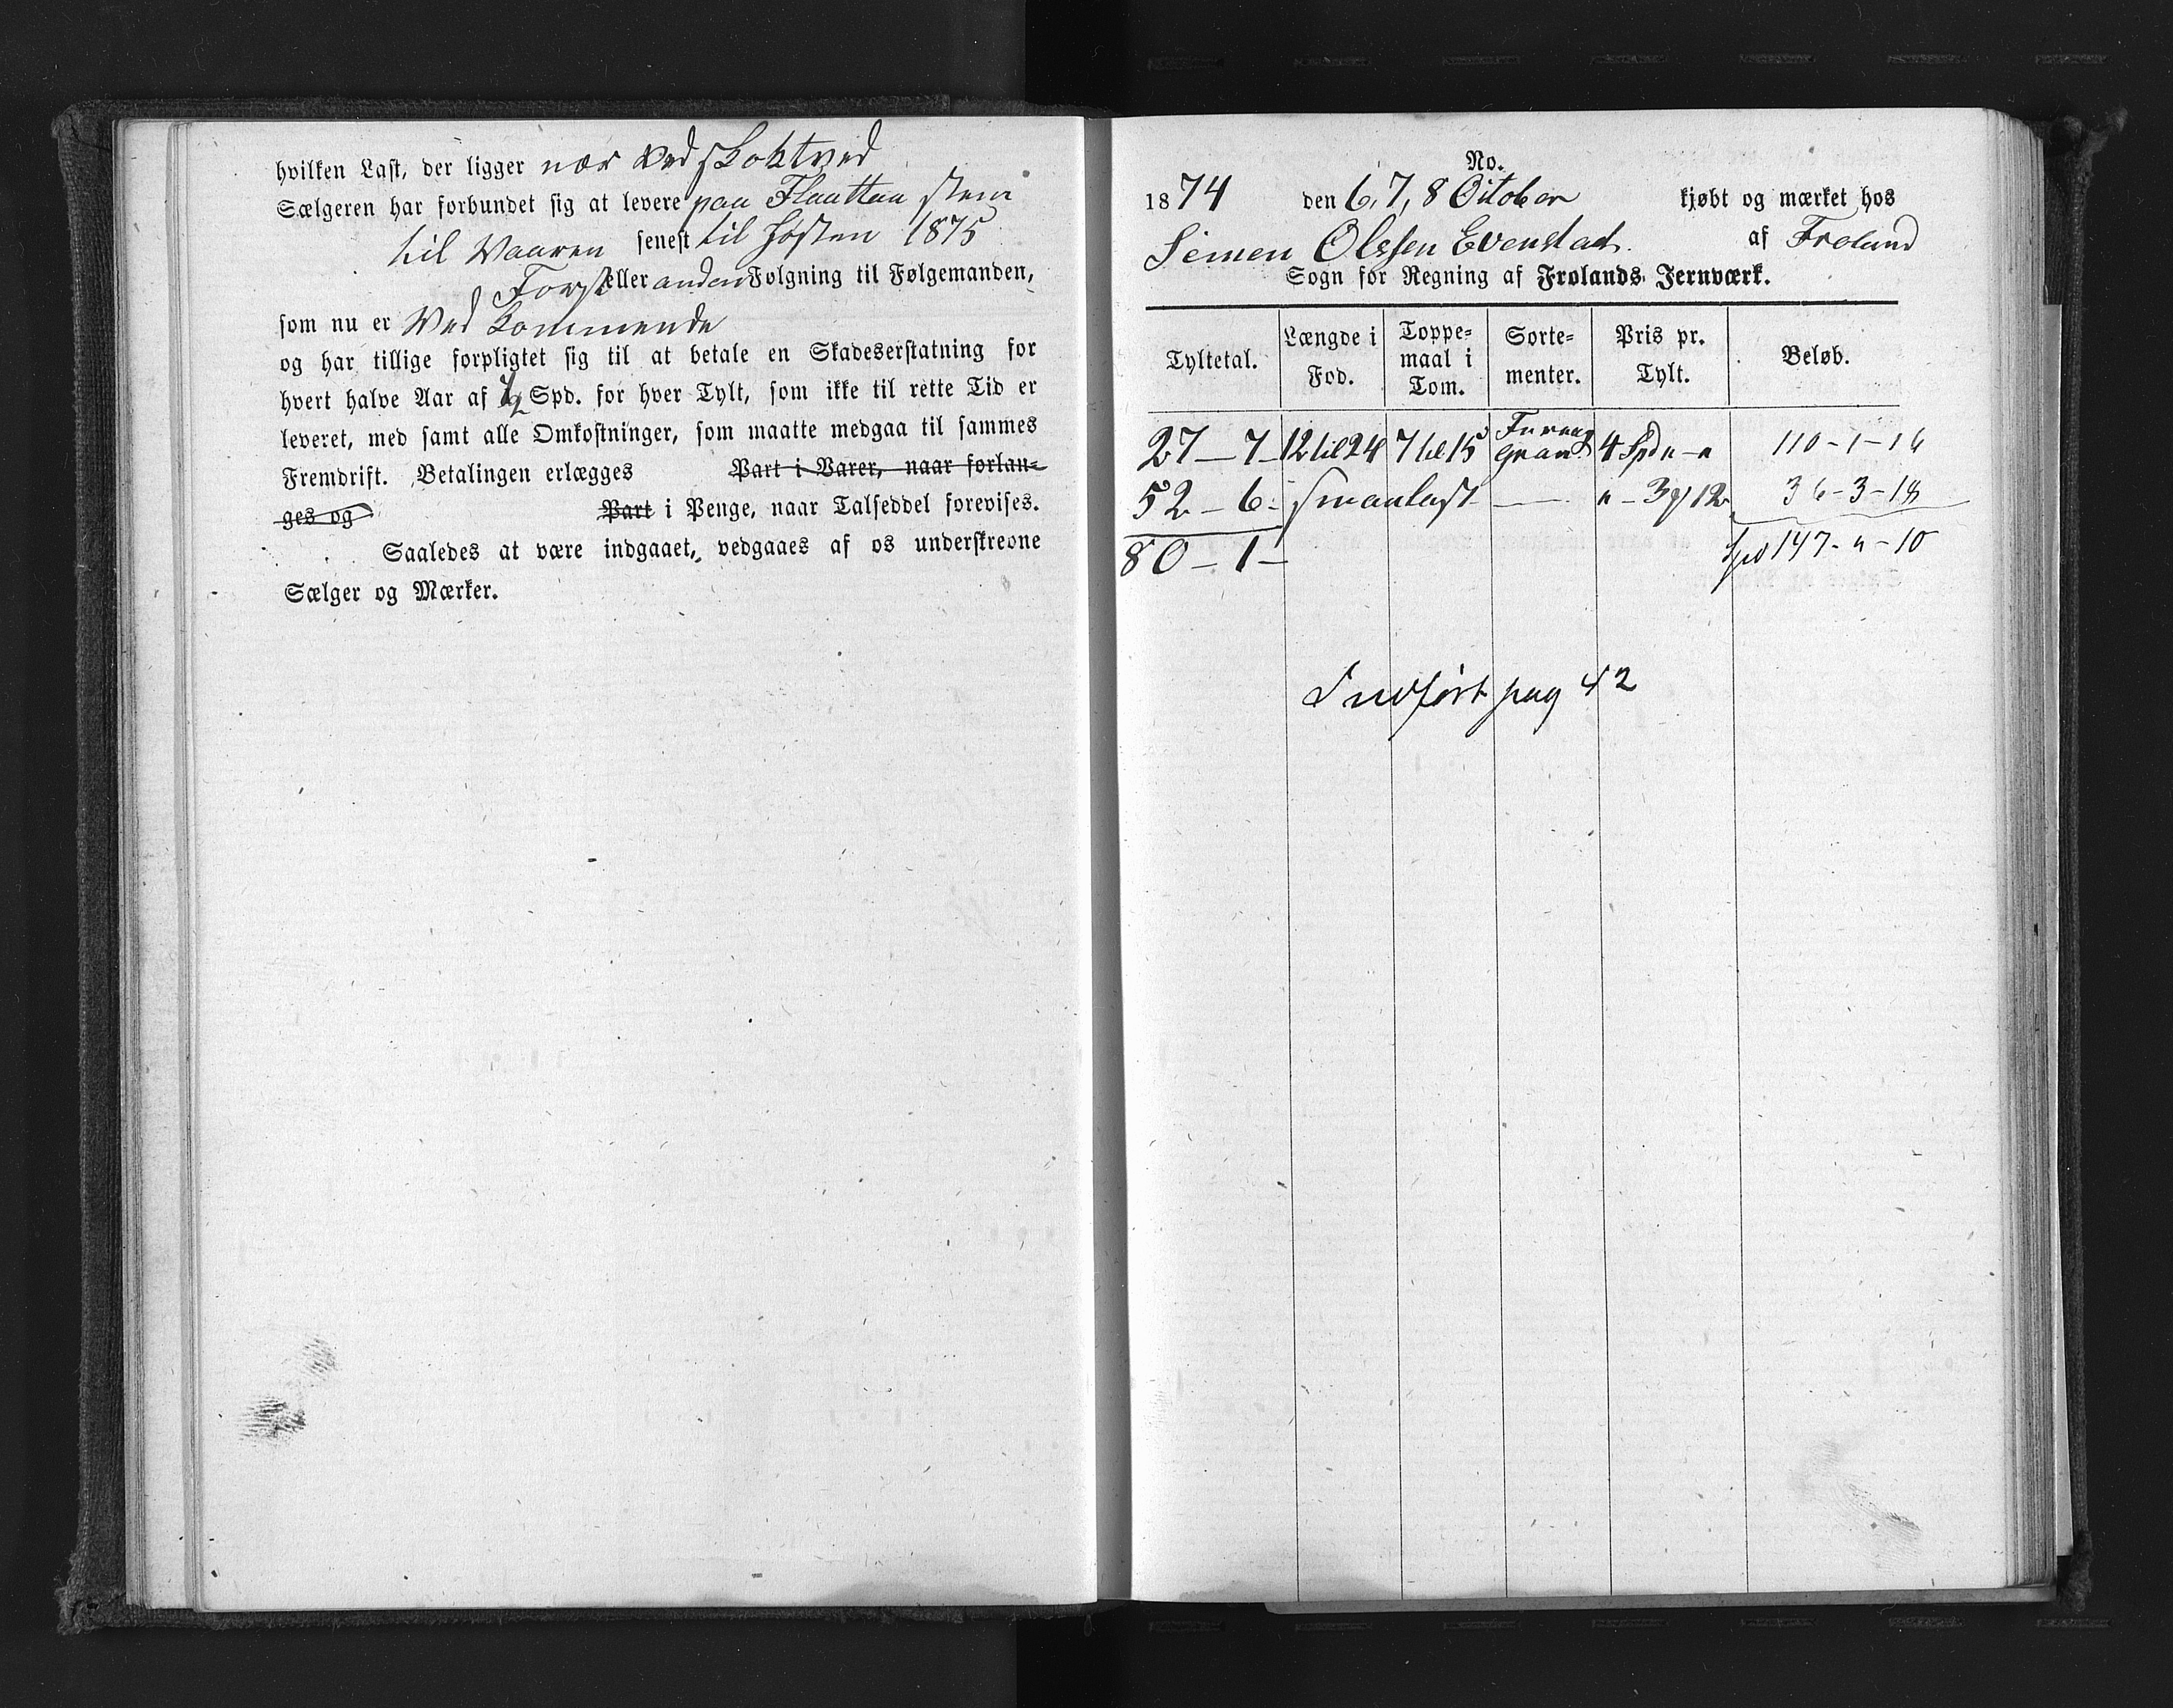 hvilken Last, der ligger nær Ved skoktved
Sælgeren har forbundet sig at levere paa Flaattaa sten
til Vaaren senest til Høsten 1875
Først eller anden Følgning til Følgemanden,
som nu er Ved Kommende
og har tillige forpligtet sig til at betale en Skadeserstatning for
hvert halve Aar af 1/2 Spd. for hver Tylt, som ikke til rette Tid er
leveret, med samt alle Omkostninger, som maatte medgaa til sammes
Fremdrift. Betalingen erlægges Part i Varer, naar forlan-
ges og Part i Penge, naar Talseddel forevises.
Saaledes at være indgaaet, vedgaaes af os underskrevne
Sælger og Mærker.
No.
1874 den 6, 7, 8 Oitober kjøbt og mærket hos
Simen Olssen Evenstad. af Froland
Sogn for Regning af Frolands Jernværk.
Tyltetal. Længde i Fod. Toppe-maal i Tom. Sorte-menter. Pris pr. Tylt. Beløb.
27 - 7 - 12 til 24 7 til 15 Furu og Gran 4 Spd " - " 110 - 1 - 16
52 - 6 - smaalast — " - 3 ß 12 36 - 3 - 18
80 - 1 - Spd 147 - " - 10
Indført pag 42